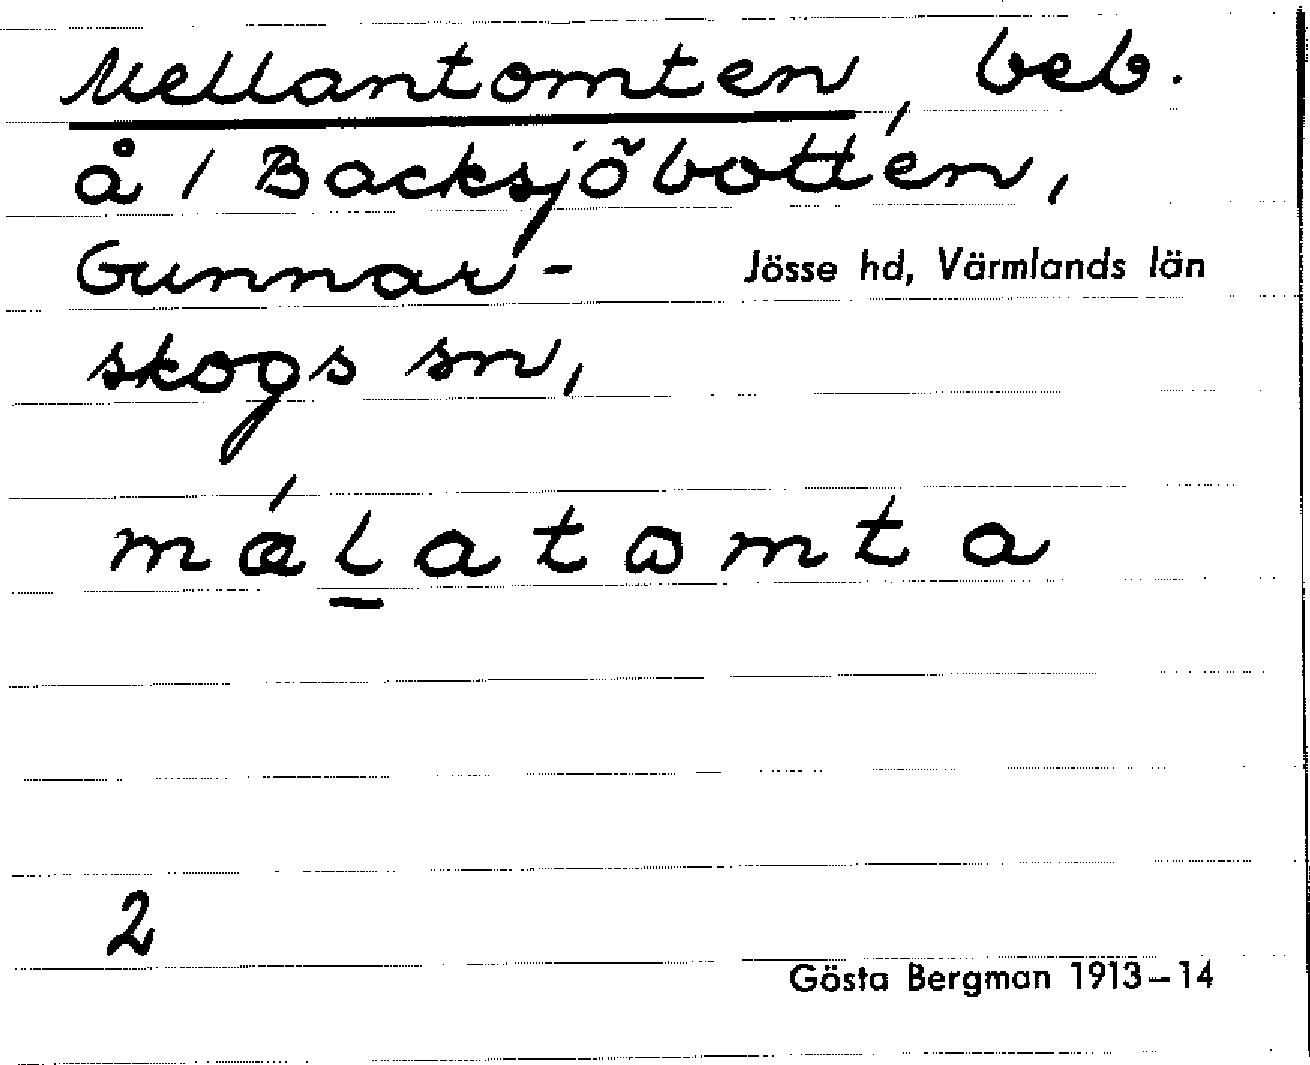 Mellantomten, beb.
å 1 Backsjöbotten,
Gunnar-
Jösse hd, Värmlands län
skogs sn,
mǽl̲atωmta
2
Gösta Bergman 1913–14